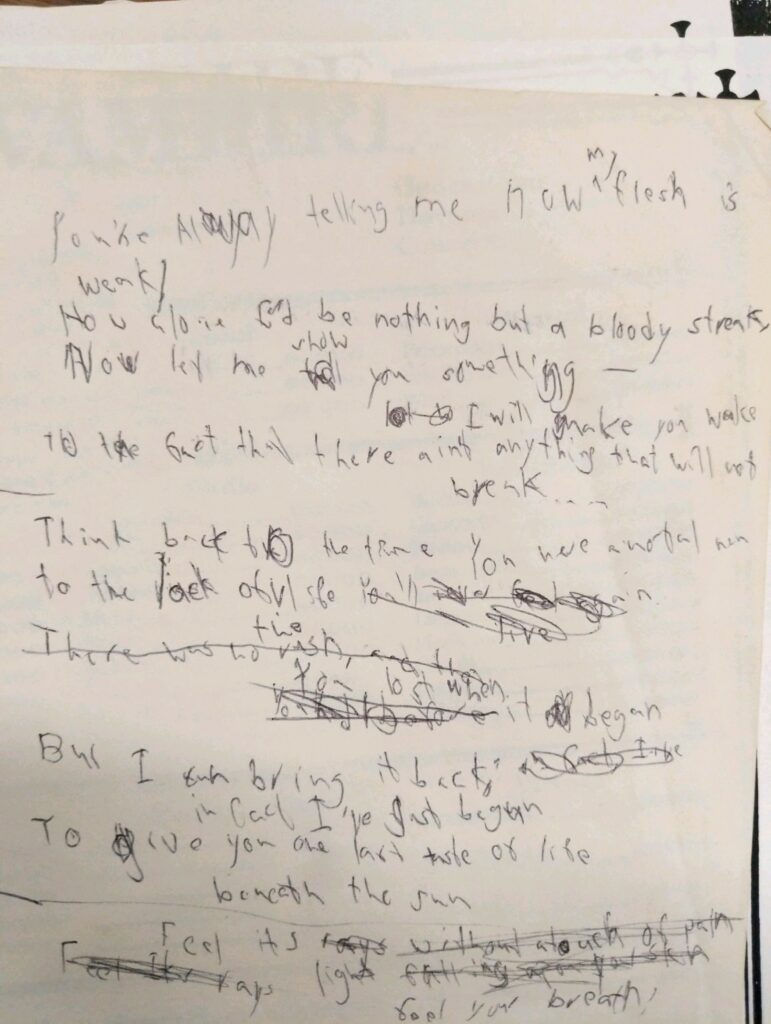 my
You're Always telling me how flesh is
weak,
How alone I'd be nothing but a bloody streak,
show
Now let me you something —
I will make you wake
to the fact that there aint anything that will not
break....
Think back to the time You were a mortal man
to the of life You'll
live
the
There was no rush, and then
You lost when
it began
But I can bring it back, in fact I've
in fact I've just begun
To give you one last taste of life
beneath the sun
Feel its rays without a touch of pain
Feel Its rays light falling upon your skin
feel your breath,